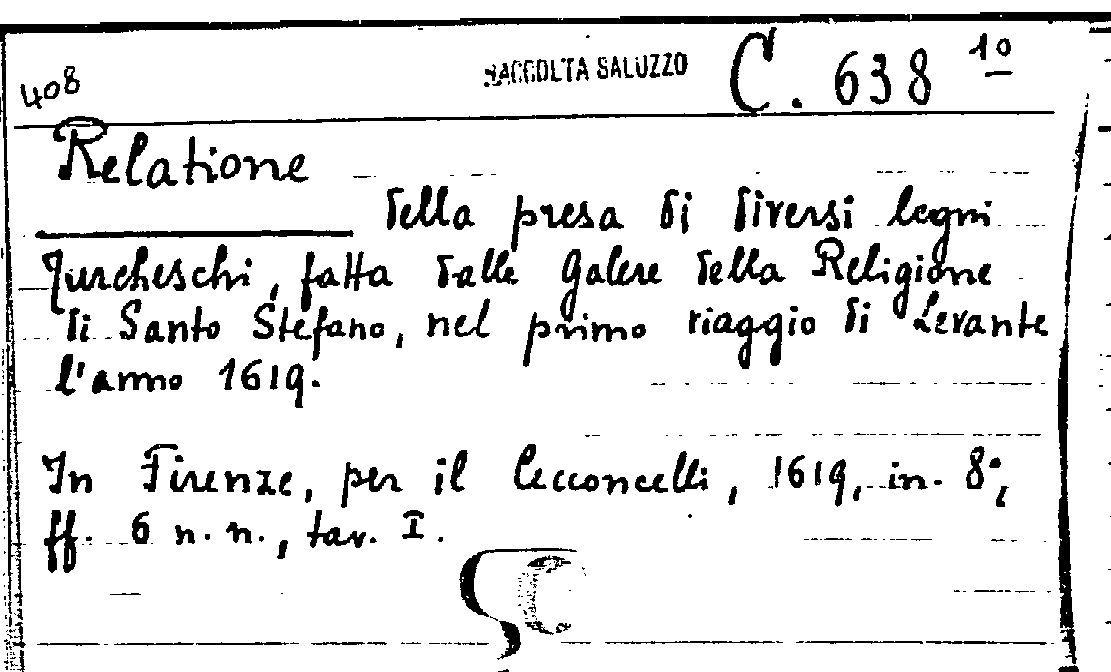 408
RACCOLTA SALUZZO
C. 638 1º
Relatione
della presa di diversi legni
Turcheschi, fatta dalle Galere della Religione
di Santo Stefano, nel primo viaggio di Levante
l'anno 1619.
In Firenze, per il Cecconcelli, 1619, in- 8º,
ff. 6 n. n., tav. I.